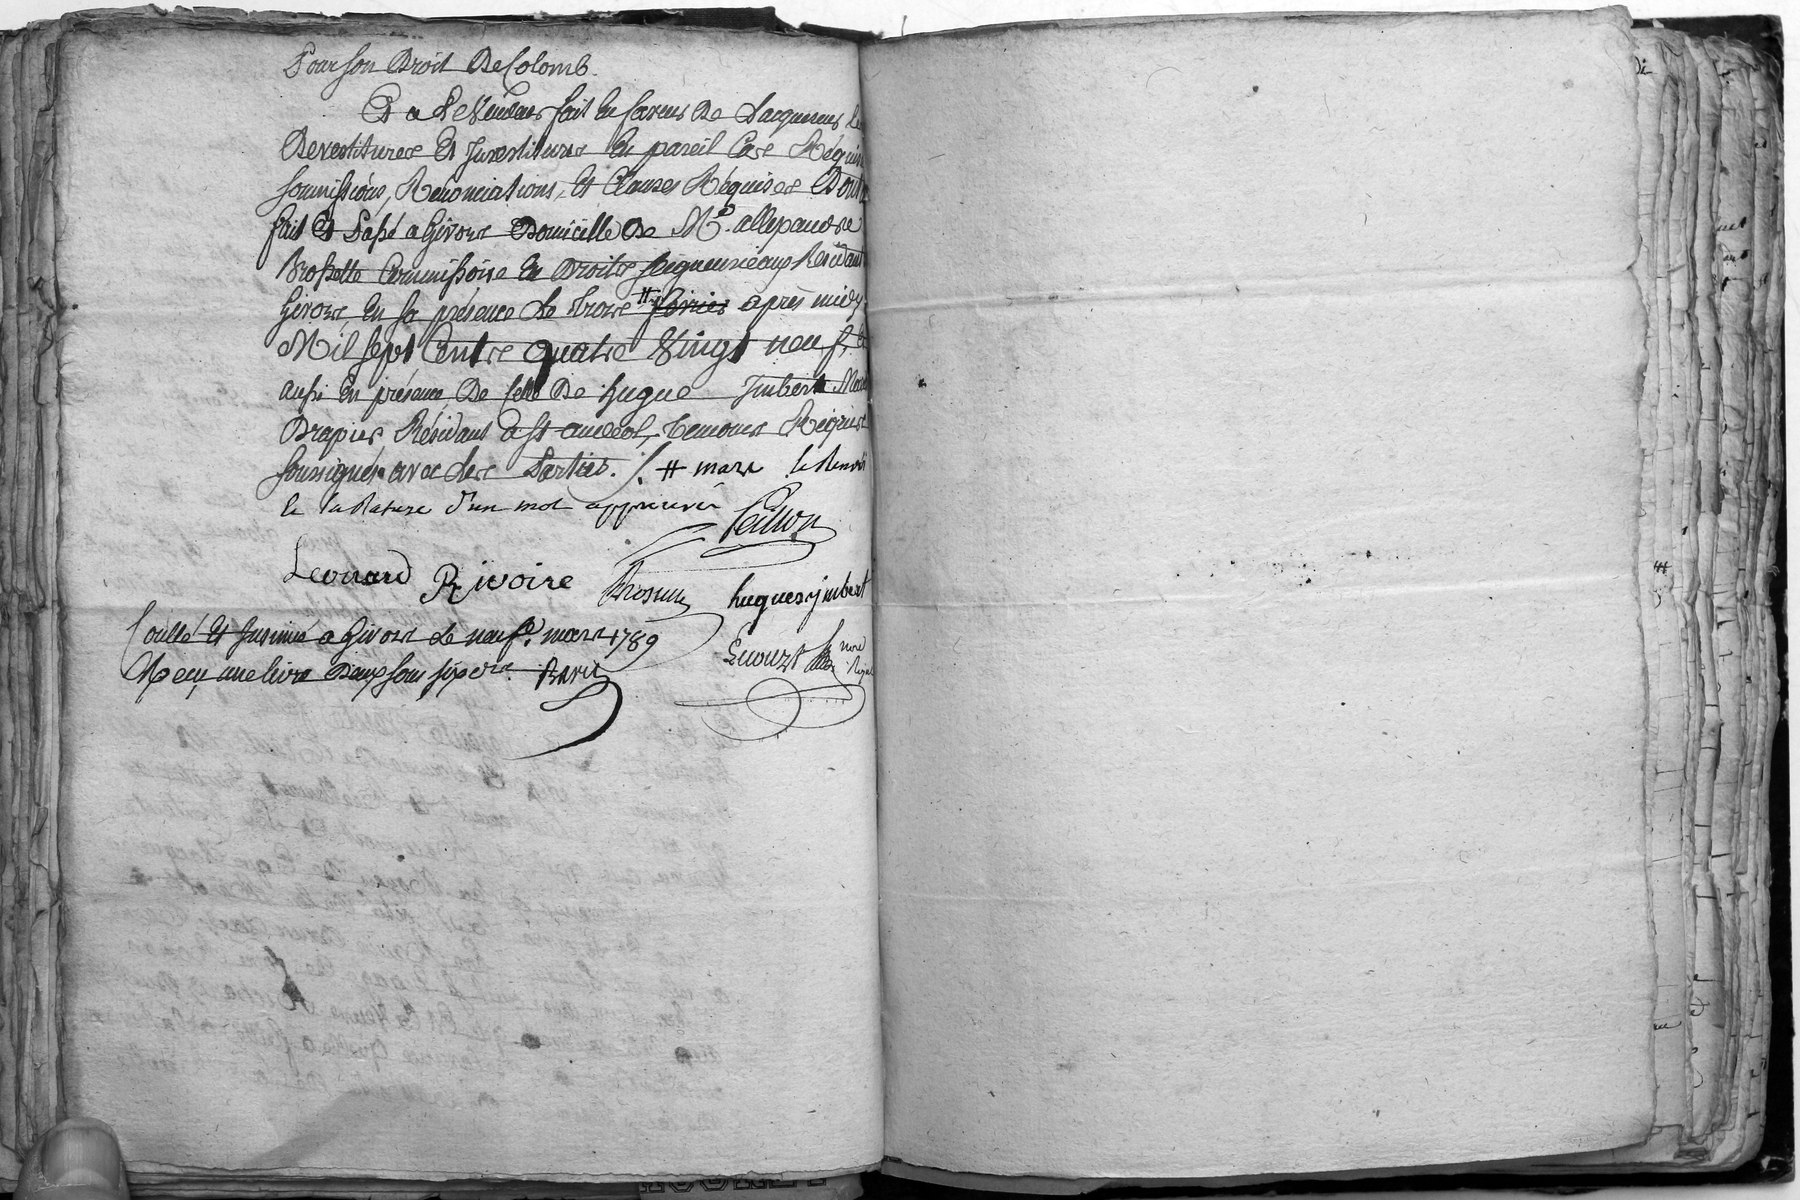 Pour son Droit De Colomb.
Et a Le Vendeur fait en faveur De Lacquereur Les
Devestitures Et Investitures En pareil Cas Requise
soumissions, Renonciations, Et Clauses Requises Dont
fait Et Passé a Givors Domicille De Me. allexandre
Brossette Commissaire En Droits seigneuriaux Residant
Givors En sa présence Le trois # fevrier après midy
Mil sept Cents quatre Vingt neuf, Et
aussi En présence De Celle De hugue Imbert Md
Drapier Résidant a St andéol, temoins Requis
soussignés avec Les Parties. /. # mars le Renvoi
le la Rature d'un mot approuvés
Peillon
Leonard Rivoire Brossette hugues ymbert
nore
Royal
Controllé Et Insinué a Givors Le neufe. mars 1789
Reçu une livre Deux sous six drs.